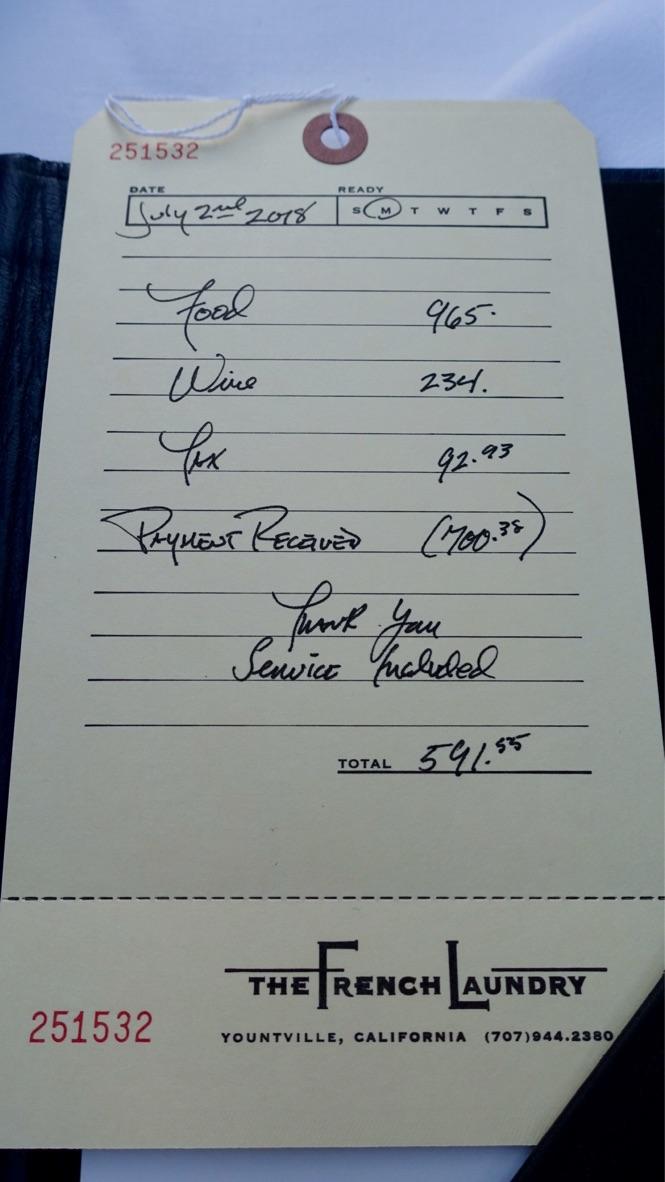 251532
DATE READY
July 2nd 2018 S M T W T F S
Food 965.
Wine 234.
Tax 92.93
Payment Received (700.38)
Thank You
Service Included
TOTAL 591.55
THE FRENCH LAUNDRY
251532
YOUNTVILLE, CALIFORNIA (707)944.2380